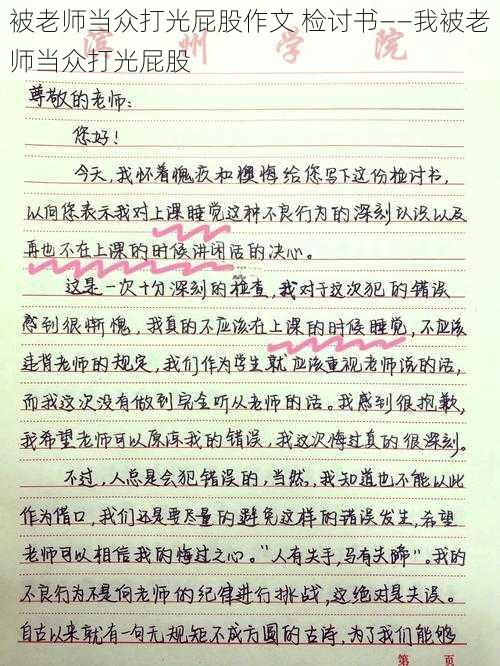 被老师当众打光屁股作文 检讨书——我被老
师当众打光屁股
滨州学院
尊敬的老师：
您好！
今天，我怀着愧疚和懊悔给您写下这份检讨书，
以向您表示我对上课睡觉这种不良行为的深刻认识以及
再也不在上课的时候讲闭话的决心。
这是一次十分深刻的检查，我对于这次犯的错误
感到很惭愧，我真的不应该在上课的时候睡觉，不应该
违背老师的规定，我们作为学生就应该重视老师说的话，
而我这次没有做到完全听从老师的话。我感到很抱歉，
我希望老师可以原谅我的错误，我这次悔过真的很深刻。
不过，人总是会犯错误的，当然，我知道也不能以此
作为借口，我们还是要尽量的避免这样的错误发生，希望
老师可以相信我的悔过之心。“人有失手，马有失蹄”。我的
不良行为不是向老师的纪律进行挑战，这绝对是失误。
自古以来就有一句无规矩不成方圆的古诗，为了我们能够
第 页